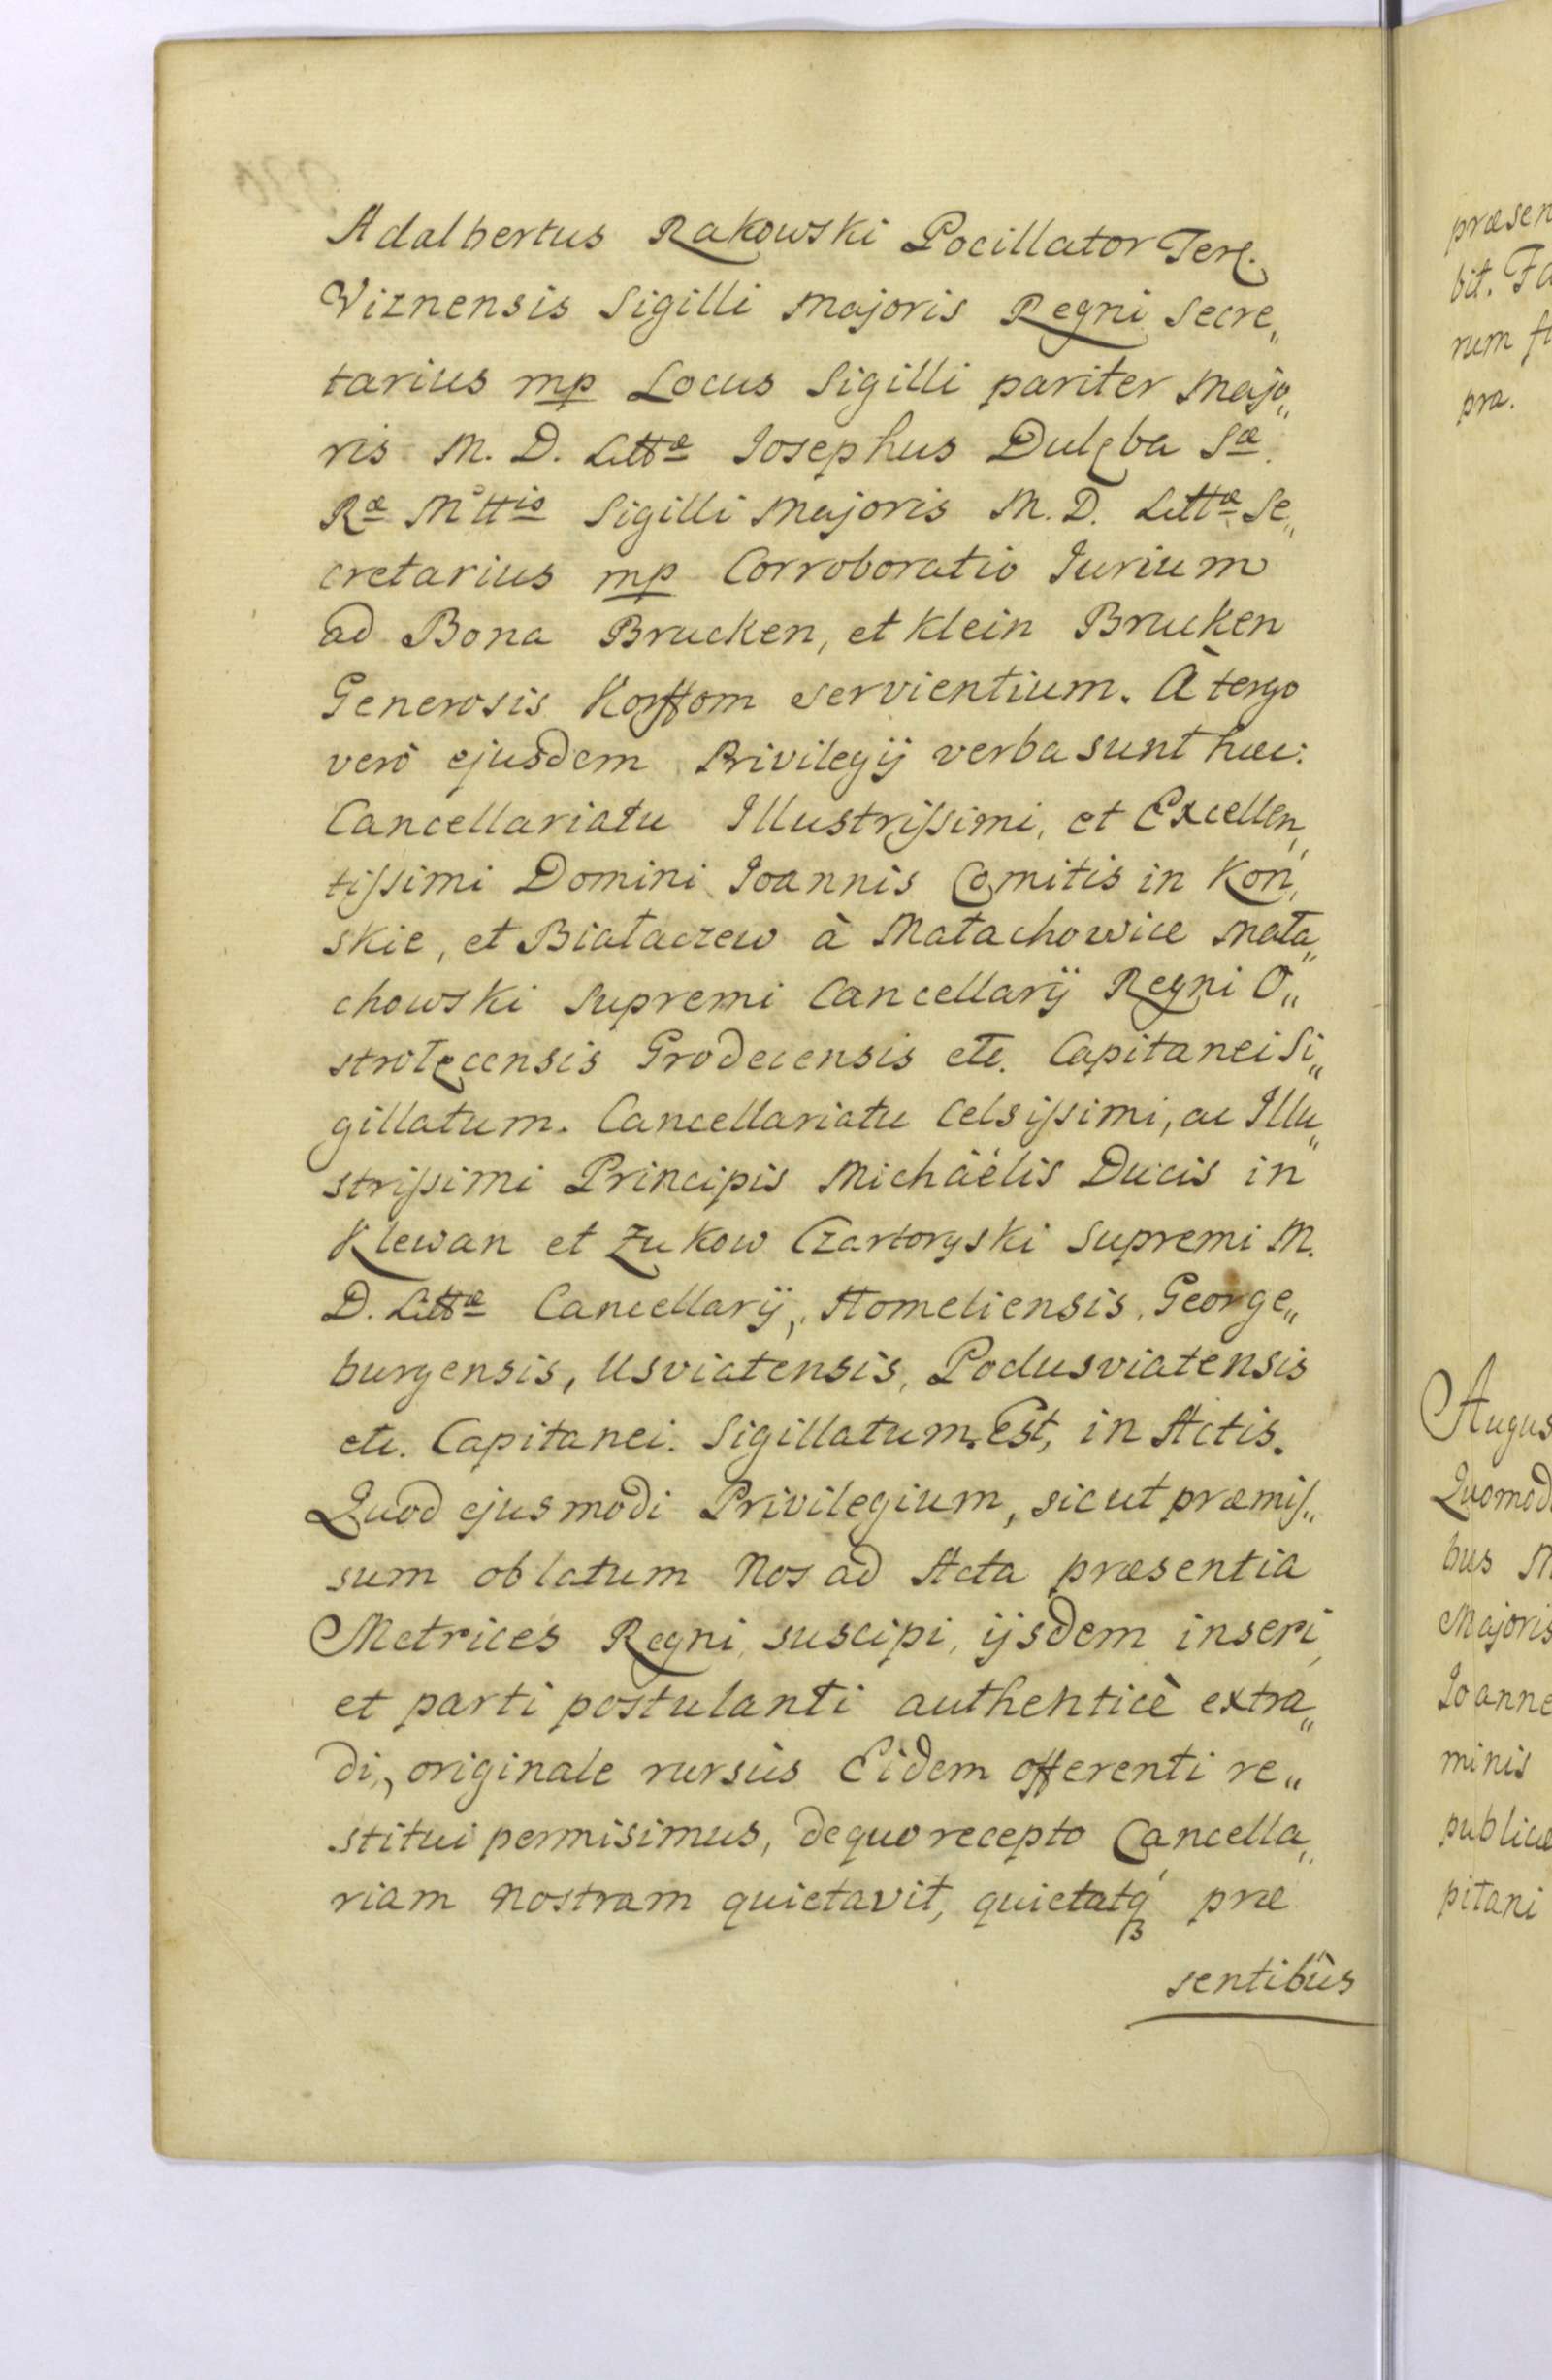 Adalbertus Rakowski Pocillator Terr.
Viznensis Sigilli Majoris Regni Secre„
tarius mp Locus Sigilli pariter Majo„
ris M. D. Littæ Iosephus Dulęba Sæ
Ræ Mttis Sigilli Majoris M. D. Littæ Se„
cretarius mp Corroboratio Iurium
ad Bona Brucken, et Klein Brucken
Generosis Korffom servientium. À tergo
verò ejusdem Privilegij verba sunt hæc:
Cancellariatu Illustrissimi, et Excellen„
tissimi Domini Ioannis Comitis in Koń„
skie, et Białaczew à Małachowice Mała„
chowski Supremi Cancellarij Regni O„
strołęcensis Grodecensis etc. Capitanei Si„
gillatum. Cancellariatu Celsissimi, ac Illu„
strissimi Principis Michäélis Ducis in
Klewan et Zukow Czartoryski Supremi M.
D. Littæ Cancellarij, Homeliensis, George„
burgensis, Usviatensis, Podusviatensis
etc. Capitanei. Sigillatum. Est, in Actis.
Quod ejusmodi Privilegium, sicut præmis„
sum oblatum Nos ad Acta præsentia
Metrices Regni, suscipi, ijsdem inseri,
et parti postulanti authenticè extra„
di, originale rursùs Eidem offerenti re„
stitui permisimus, de quo recepto Cancella„
riam nostram quietavit, quietatq́ præ
sentibûs
præsen
bit. Fa
rum
pra.
Augus
Quomod
bus M
Majoris
Ioanne
minis
publicæ
pitani